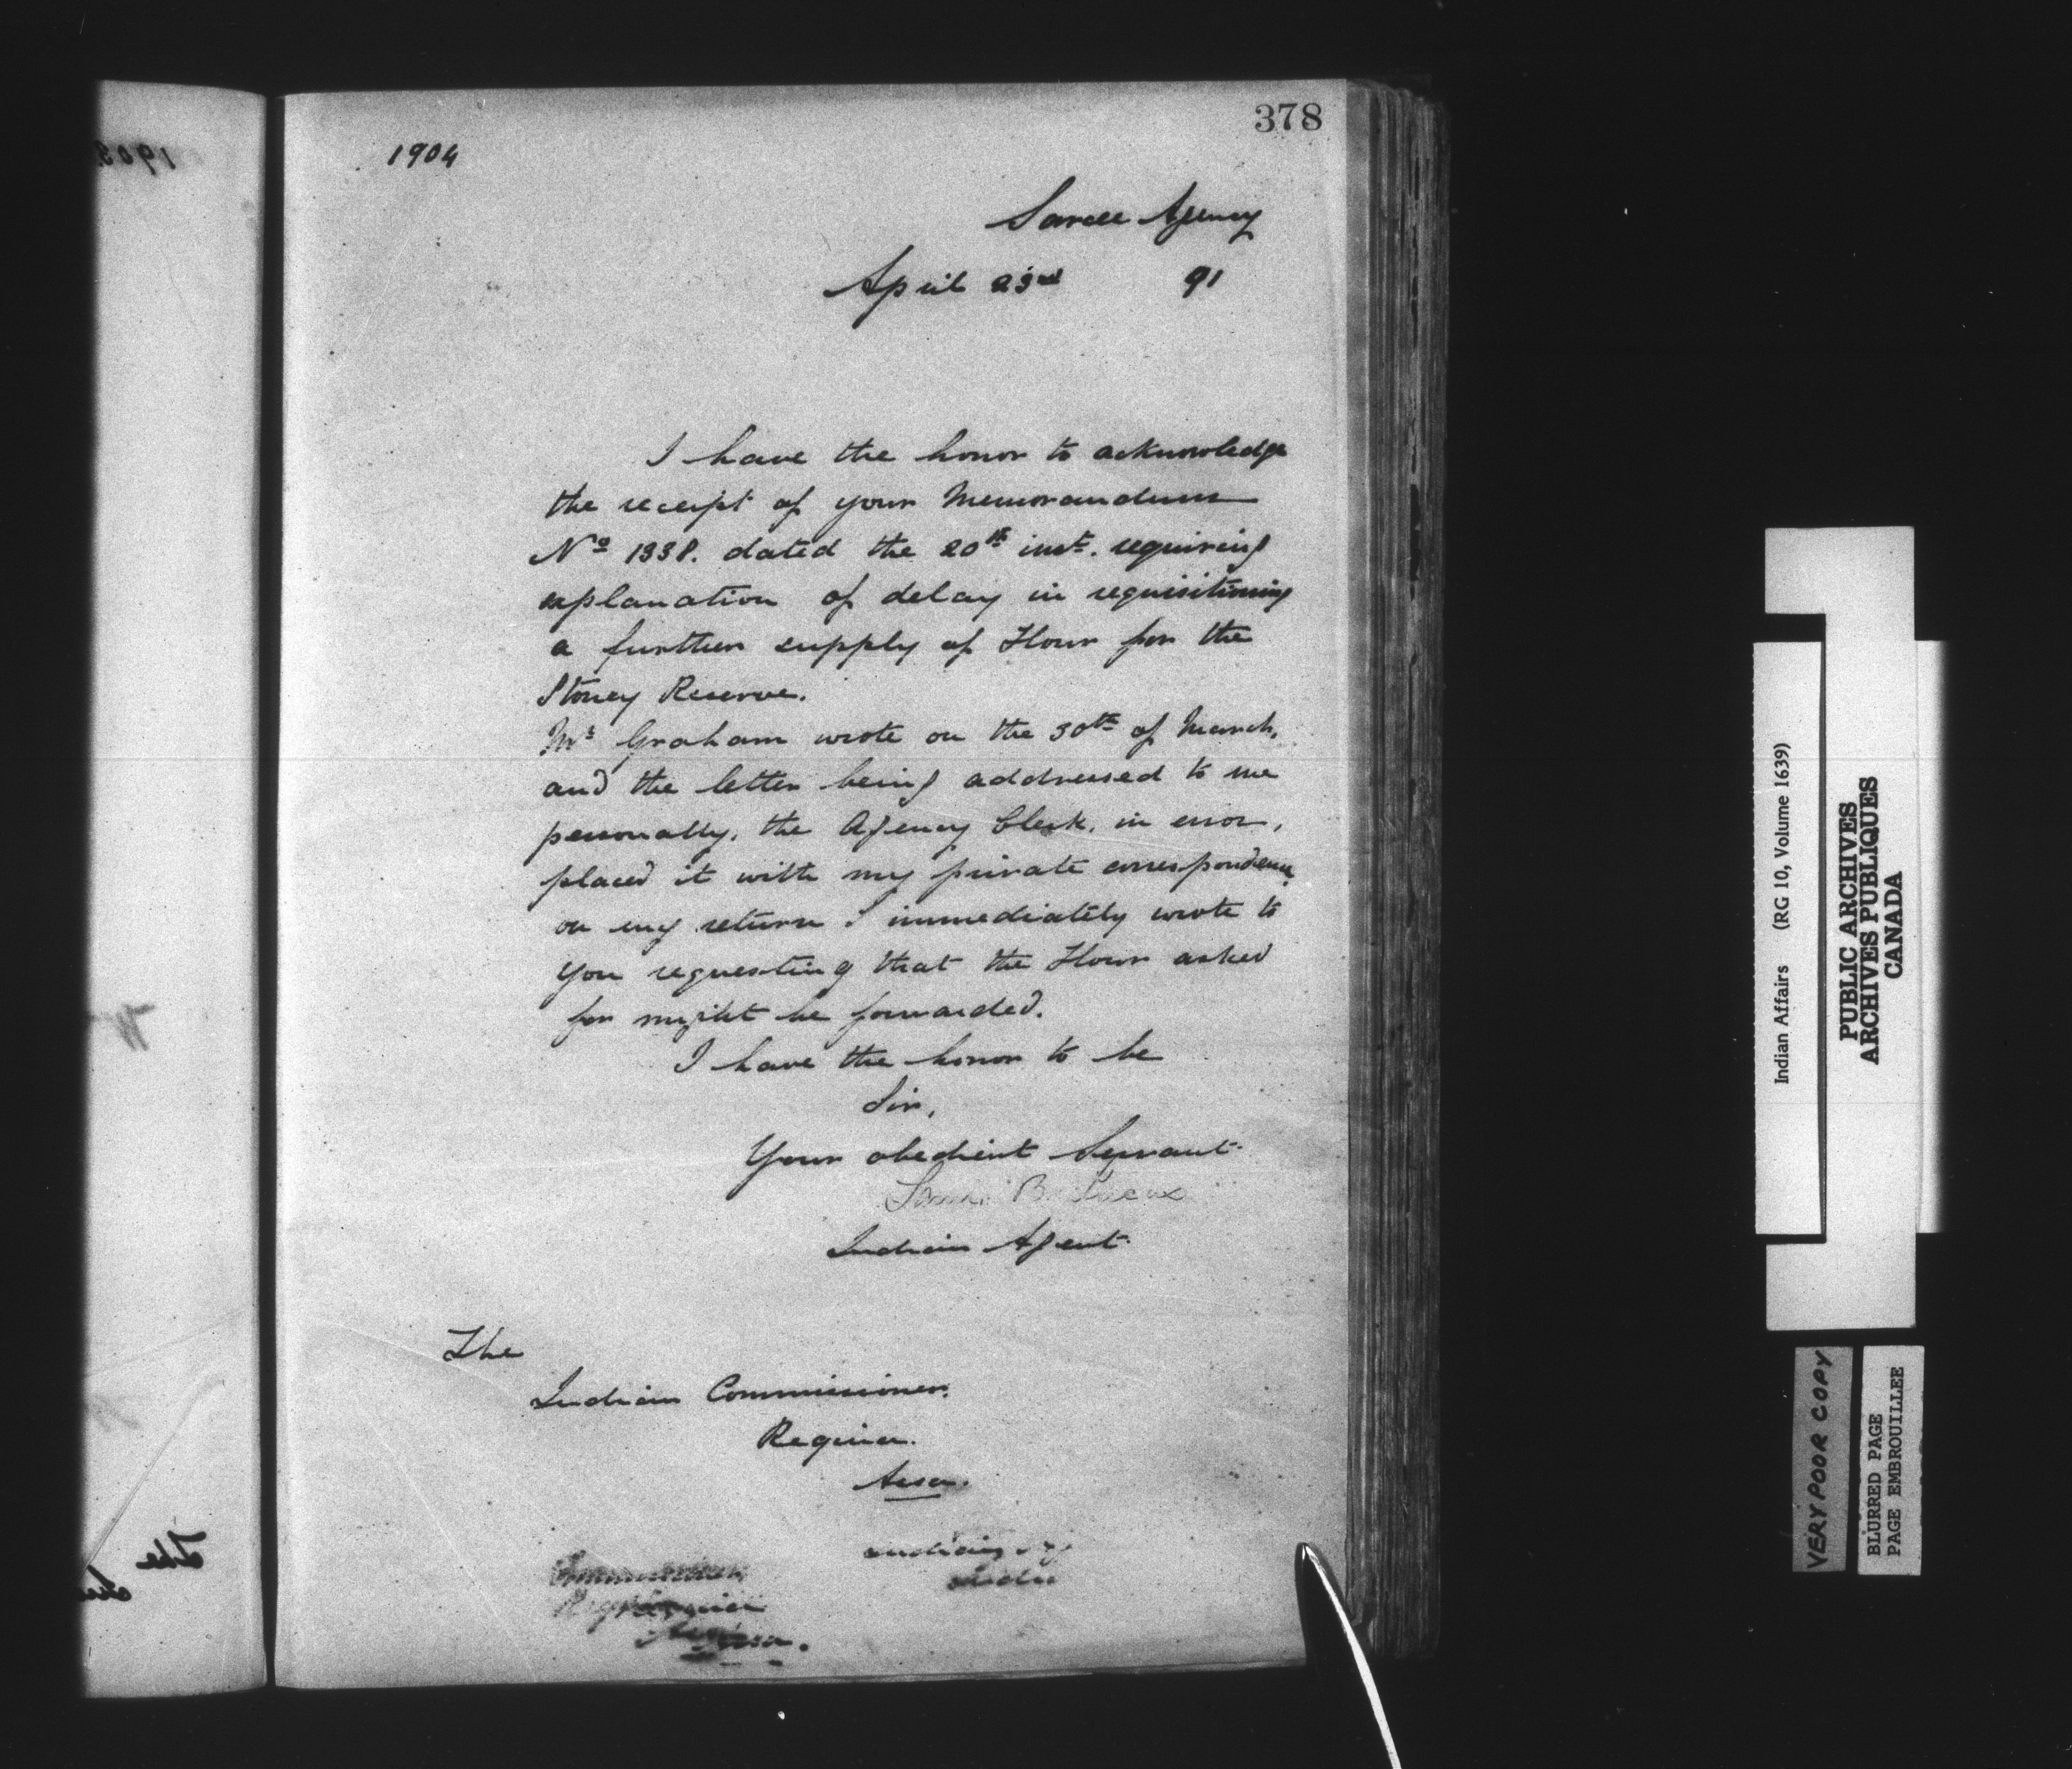 378
1904
Sarcee Agency
April 23rd 91
I have the honor to acknowledge
the receipt of your Memorandum
No 1338. dated the 20th inst. requiring
explanation of delay in requisitioning
a further supply of Flour for the
Stoney Reserve.
Mr Graham wrote on the 30th of March,
and the letter being addressed to me
personally, the Agency Clerk, in error,
placed it with my private correspondence
on my return I immediately wrote to
you requesting that the Flour asked
for might be forwarded.
I have the honor to be
Sir,
Your obedient Servant
Indian Agent
The
Indian Commissioner.
Regina.
Assa.
Indian Affairs (RG 10, Volume 1639)
PUBLIC ARCHIVES
ARCHIVES PUBLIQUES
CANADA
VERY POOR COPY
BLURRED PAGE
PAGE EMBROUILLEE